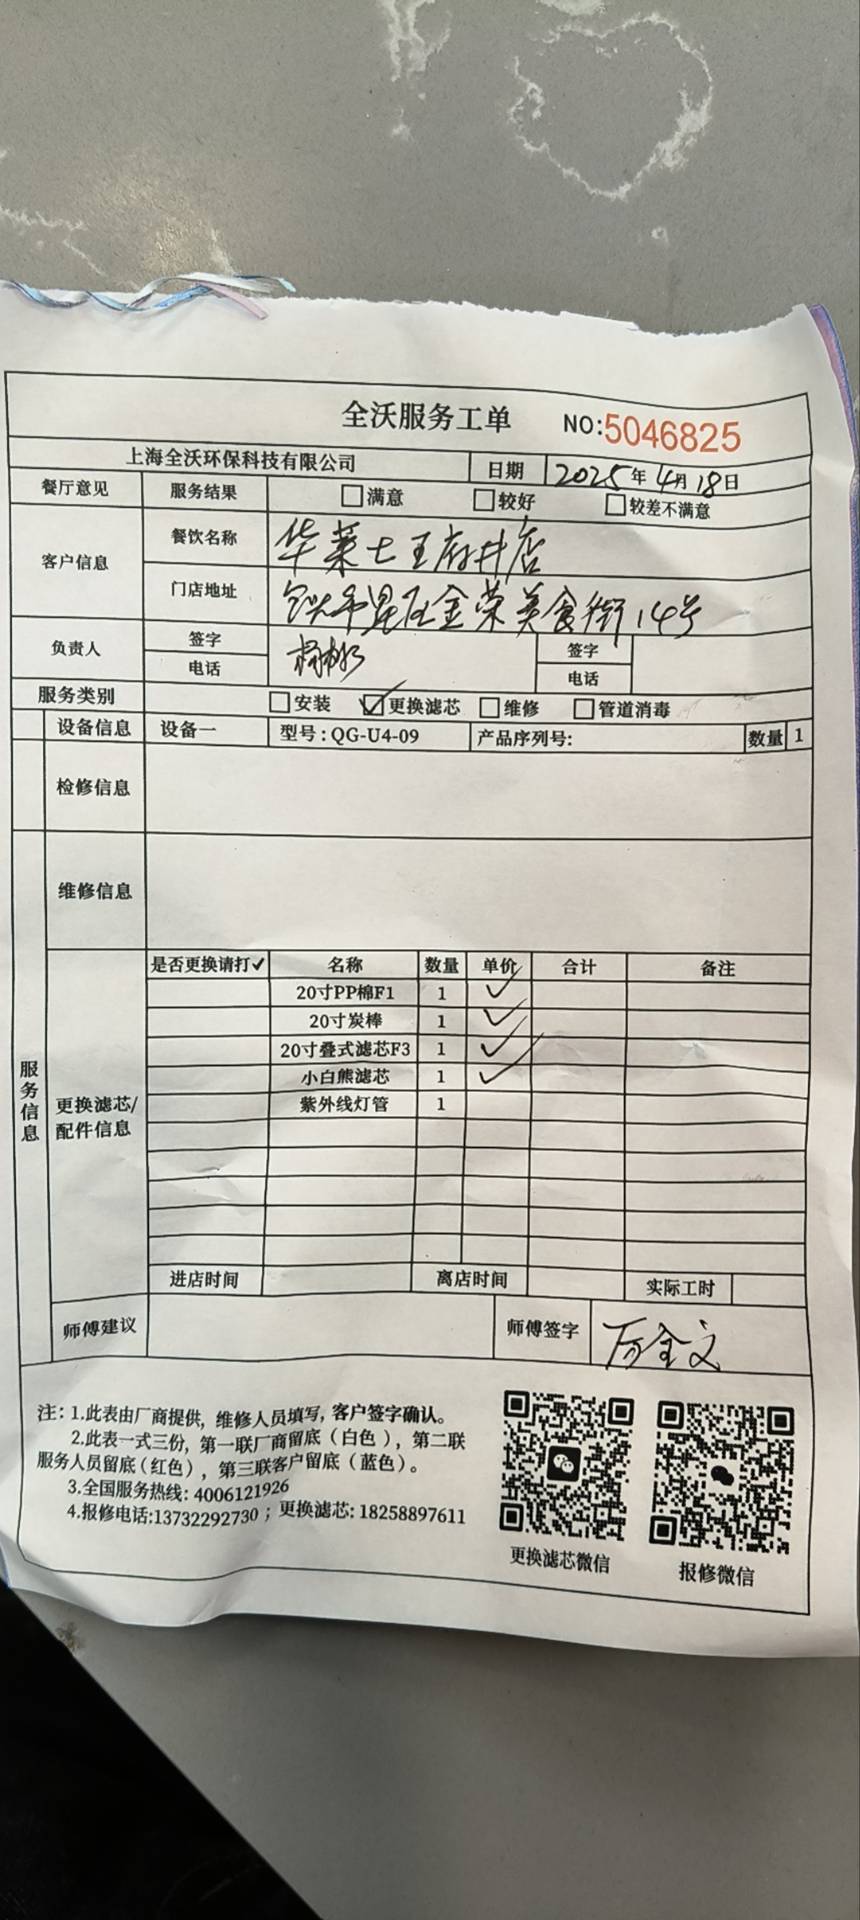 全沃服务工单 NO:5046825
上海全沃环保科技有限公司 日期 2025年4月18日
餐厅意见 服务结果 □满意 □较好 □较差不满意
客户信息 餐饮名称 华莱士王府井店
门店地址 金荣美食街14号
负责人 签字 签字
电话 电话
服务类别 □安装 ☑更换滤芯 □维修 □管道消毒
设备信息 设备一 型号:QG-U4-09 产品序列号: 数量 1
检修信息
维修信息
服务信息
更换滤芯/配件信息
是否更换请打✓ 名称 数量 单价 合计 备注
20寸PP棉F1 1 ✓
20寸炭棒 1 ✓
20寸叠式滤芯F3 1 ✓
小白熊滤芯 1 ✓
紫外线灯管 1
进店时间 离店时间 实际工时
师傅建议 师傅签字
注:1.此表由厂商提供,维修人员填写,客户签字确认。
2.此表一式三份,第一联厂商留底(白色),第二联
服务人员留底(红色),第三联客户留底(蓝色)。
3.全国服务热线:4006121926
4.报修电话:13732292730;更换滤芯:18258897611
更换滤芯微信 报修微信